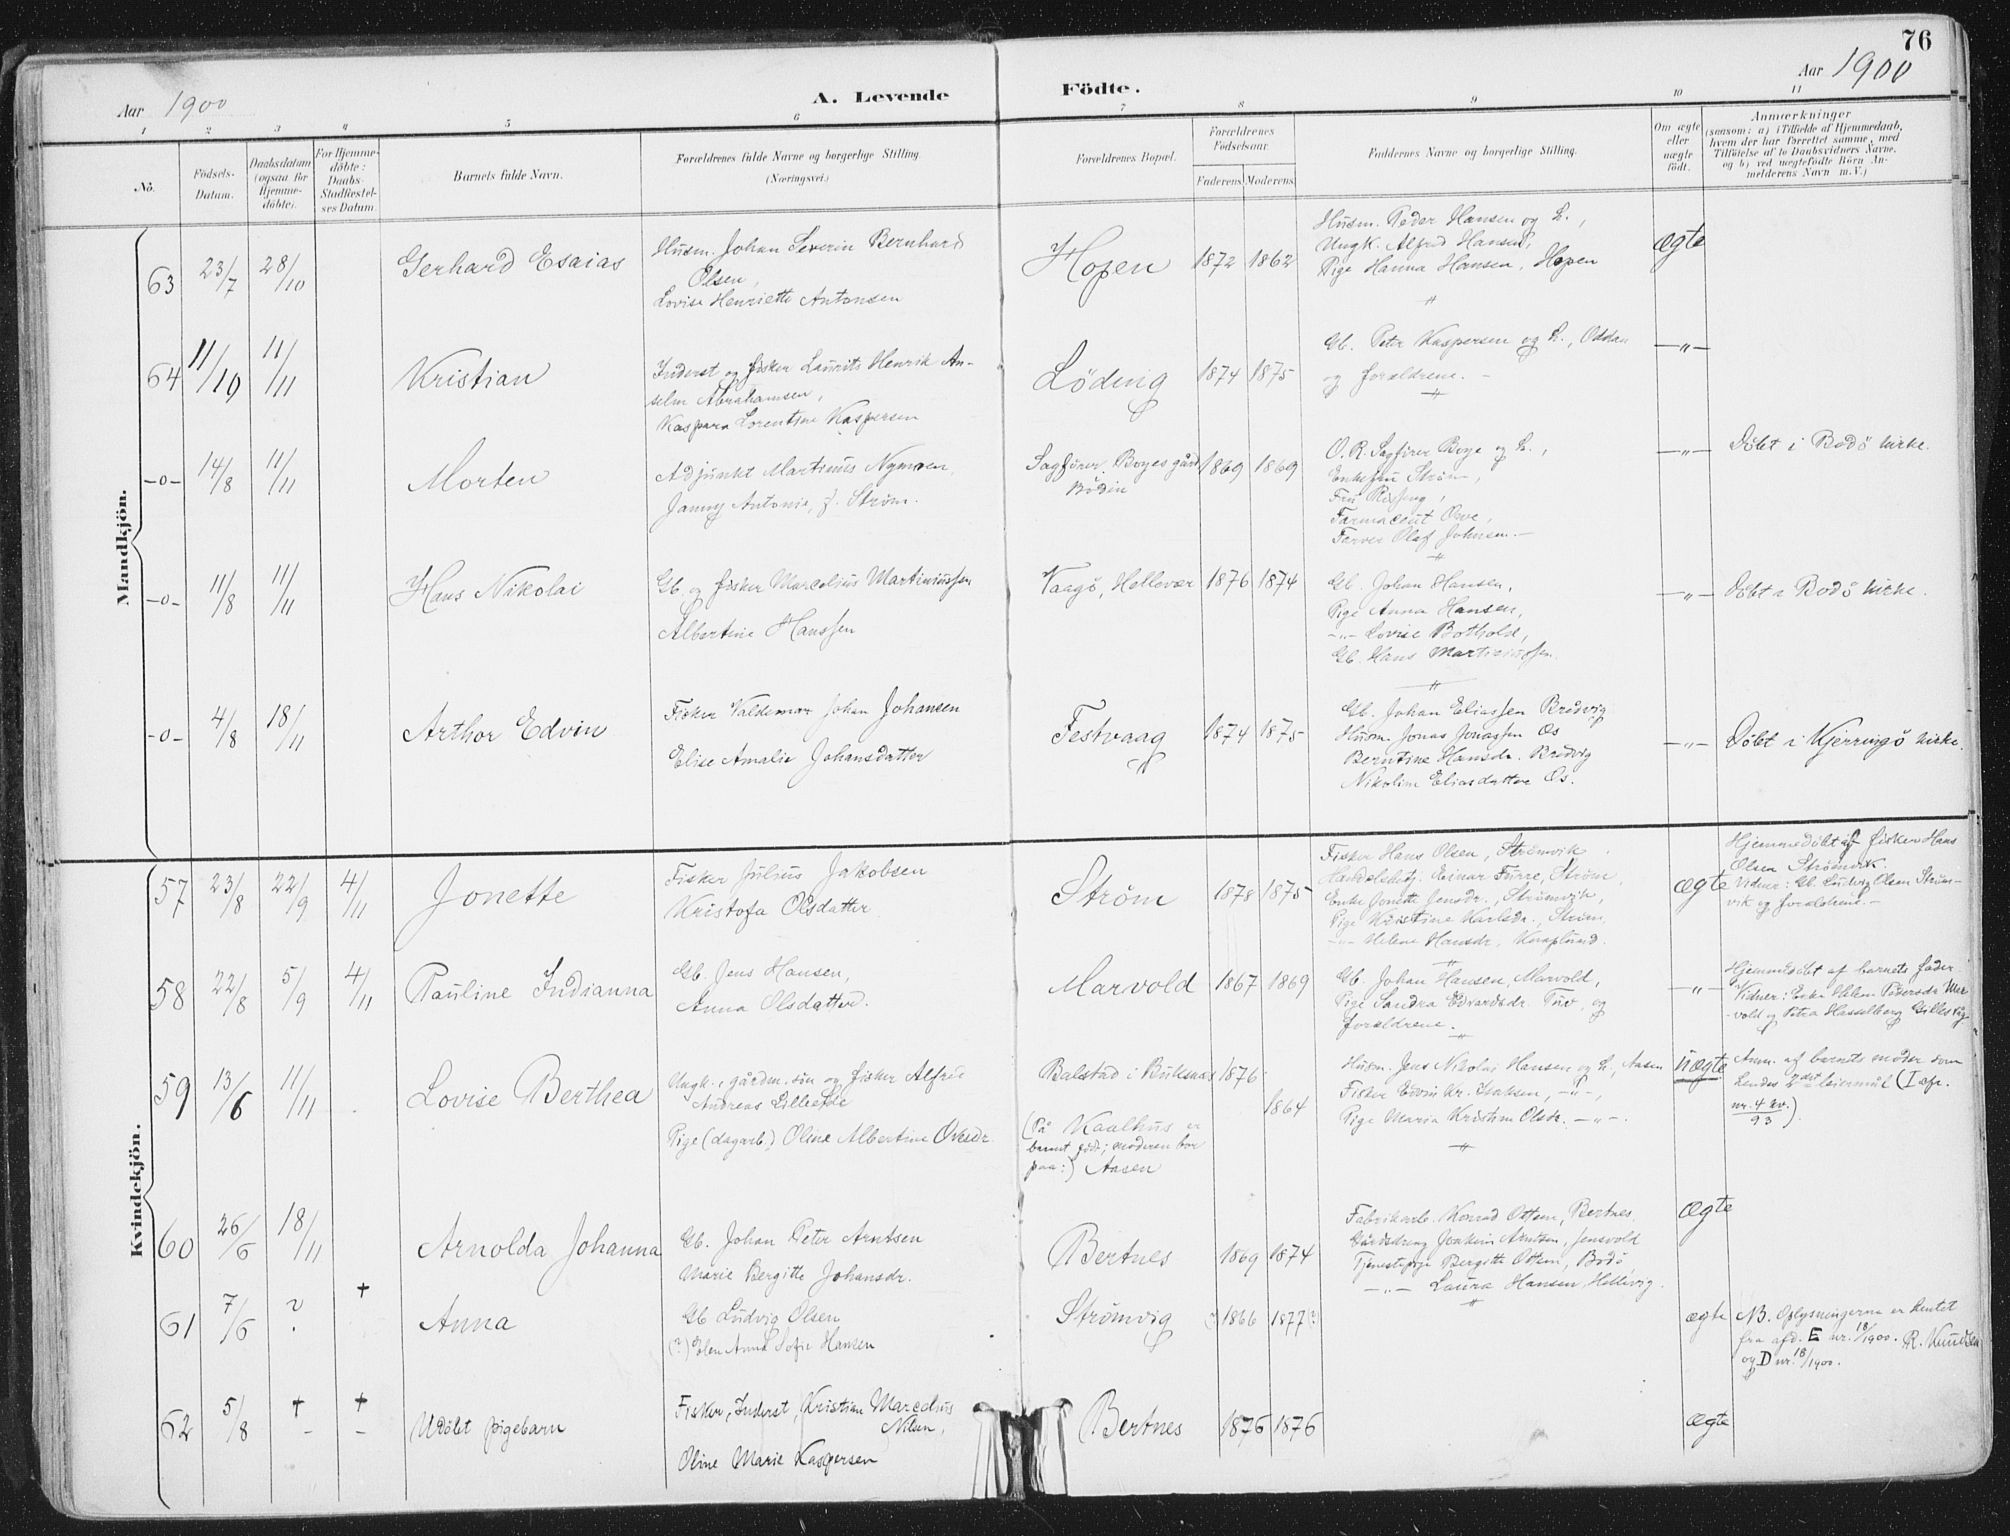 76
Aar 1900
A. Levende
Födte.
Aar 1900
1
2
3
4
5
6
7
8
9
10
11
No.
Födsels-
Datum.
Daabsdatum
(ogsaa for
Hjemme-
döbte).
For Hjemme-
döbte:
Daabs-
Stadfæstel-
ses Datum.
Barnets fulde Navn.
Forældrenes fulde Navne og borgerlige Stilling.
(Næringsvei.)
Forældrenes Bopæl.
Forældrenes
Födselsaar.
Faderens
Moderens
Faddernes Navne og borgerlige Stilling.
Om ægte
eller
uægte
födt.
Anmærkninger
(saasom: a) i Tilfælde af Hjemmedaab,
hvem der har forrettet samme, med
Tilföielse af to Daabsvidners Navne,
og b) ved uægtefödte Börn An-
melderens Navn m. V.)
Mandkjön.
63
23/7
28/10
Gerhard Esaias
Husm. Johan Severin Bernhard
Olsen,
Lovise Henriette Antonsen
Hopen
1872
1862
Husm. Peder Hansen og h.,
Ungk. Alfred Hansen,
Pige Hanna Hansen, Hopen
"
ægte
64
11/10
11/11
Kristian
Inderst og fisker Laurits Henrik An-
selm Abrahamsen,
Kaspara Lorentine Kaspersen
Löding
1874
1875
Gb. Peter Kaspersen og h., Oddan
og forældrene. -
"
-"-
-o-
14/8
11/11
Morten
Adjunkt Martinus Nymoen,
Janny Antonie, f. Strøm.
Sagfører Boyes gård
Bodin
1869
1869
O. R. Sagfører Boye og h.,
Enkefru Strøm,
Fru
Farmaceut
Farver Olaf Johnsen. -
"
-"-
Döbt i Bodö kirke.
-o-
11/8
11/11
Hans Nikolai
Gb. og fisker Marcelius Martiniussen
Albertine Hanssen
Vaagö, Hellevær
1876
1874
Gb. Johan Hansen,
Pige Anna Hansen,
-"- Lovise Botholdt,
Gb. Hans Martiniussen.
"
-"-
Döbt i Bodö kirke.
-o-
4/8
18/11
Arthor Edvin
Fisker Valdemar Johan Johansen
Elise Amalie Johansdatter
Festvaag
1874
1875
Gb. Johan Eliassen Bredvig
Husm. Jonas Jonassen Os
Berntine Hansdr. Bredvig
Nikoline Eliasdatter Os.
-"-
Döbt i Kjerringö kirke.
Kvindekjön.
57
23/8
22/9
4/11
Jonette
Fisker Julius Jakobsen
Kristofa Olsdatter
Strøm
1878
1875
Fisker Hans Olsen, Strømvik
Handelsbetj. Einar Furre, Strøm,
Enke Jonette Jensdr., Strømvik,
Pige Kristine Karlsdr., Strøm,
-"- Helene Hansdr., Knaplund.
"
ægte
Hjemmedöbt af fisker Hans
Olsen Strømvik.
Vidner: Gb. Ludvig Olsen Strøm-
vik og forældrene. -
58
22/8
5/9
4/11
Pauline Indianna
Gb. Jens Hansen,
Anna Olsdatter.
Marvold
1867
1869
Gb. Johan Hansen, Marvold,
Pige Sandra Edvardsdr. Tuv, og
forældrene. -
"
-"-
Hjemmedöbt af barnets fader.
Vidner: Enke Helene Pedersdr Mar-
vold og Petra Hasselberg Gillesvåg
59
13/6
11/11
Lovise Berthea
Ungk., gårdm. søn og fisker Alfred
Andreas Lilleeide
Pige (dagarb.) Oline Albertine Olsdr.
Balstad i Buksnæs
(På Kaalhus er
barnet født; moderen bor
paa:) Aasen
1876
1864
Husm. Jens Nikolai Hansen og h., Aasen
Fisker Edvin Kr. Isaksen, -"-,
Pige Maria Kristine Olsdr. -"-.
"
uægte
Anm. af barnets moder som
hendes 2det leiermål (I afr.
nr. 4 kv./93).
60
26/6
18/11
Arnolda Johanna
Gb. Johan Peter Arntsen
Marie Bergitte Johansdr.
Bertnes
1869
1874
Fabrikarb. Konrad Ottsen, Bertnes,
Gårdsdreng Joakim Arntsen, Jensvold
Tjenestepige Bergitte Ottsen, Bodö,
-"- Laura Hansen, Hellevig.
"
ægte
61
7/6
?
+
Anna
Gb Ludvig Olsen
(?) Elen Anna Sofie Hansen
Strømvig
(?) 1866
1877 (?)
ægte
NB. Oplysningerne er hentet
fra afd. E nr. 18/1900. R. Knudsen
og D nr. 18/1900.
62
5/8
+
-
+
-
Udöbt pigebarn
Fisker, Inderst, Kristian Marcelius
Nilsen,
Oline Marie Kaspersen
Bertnes
1876
1876
ægte